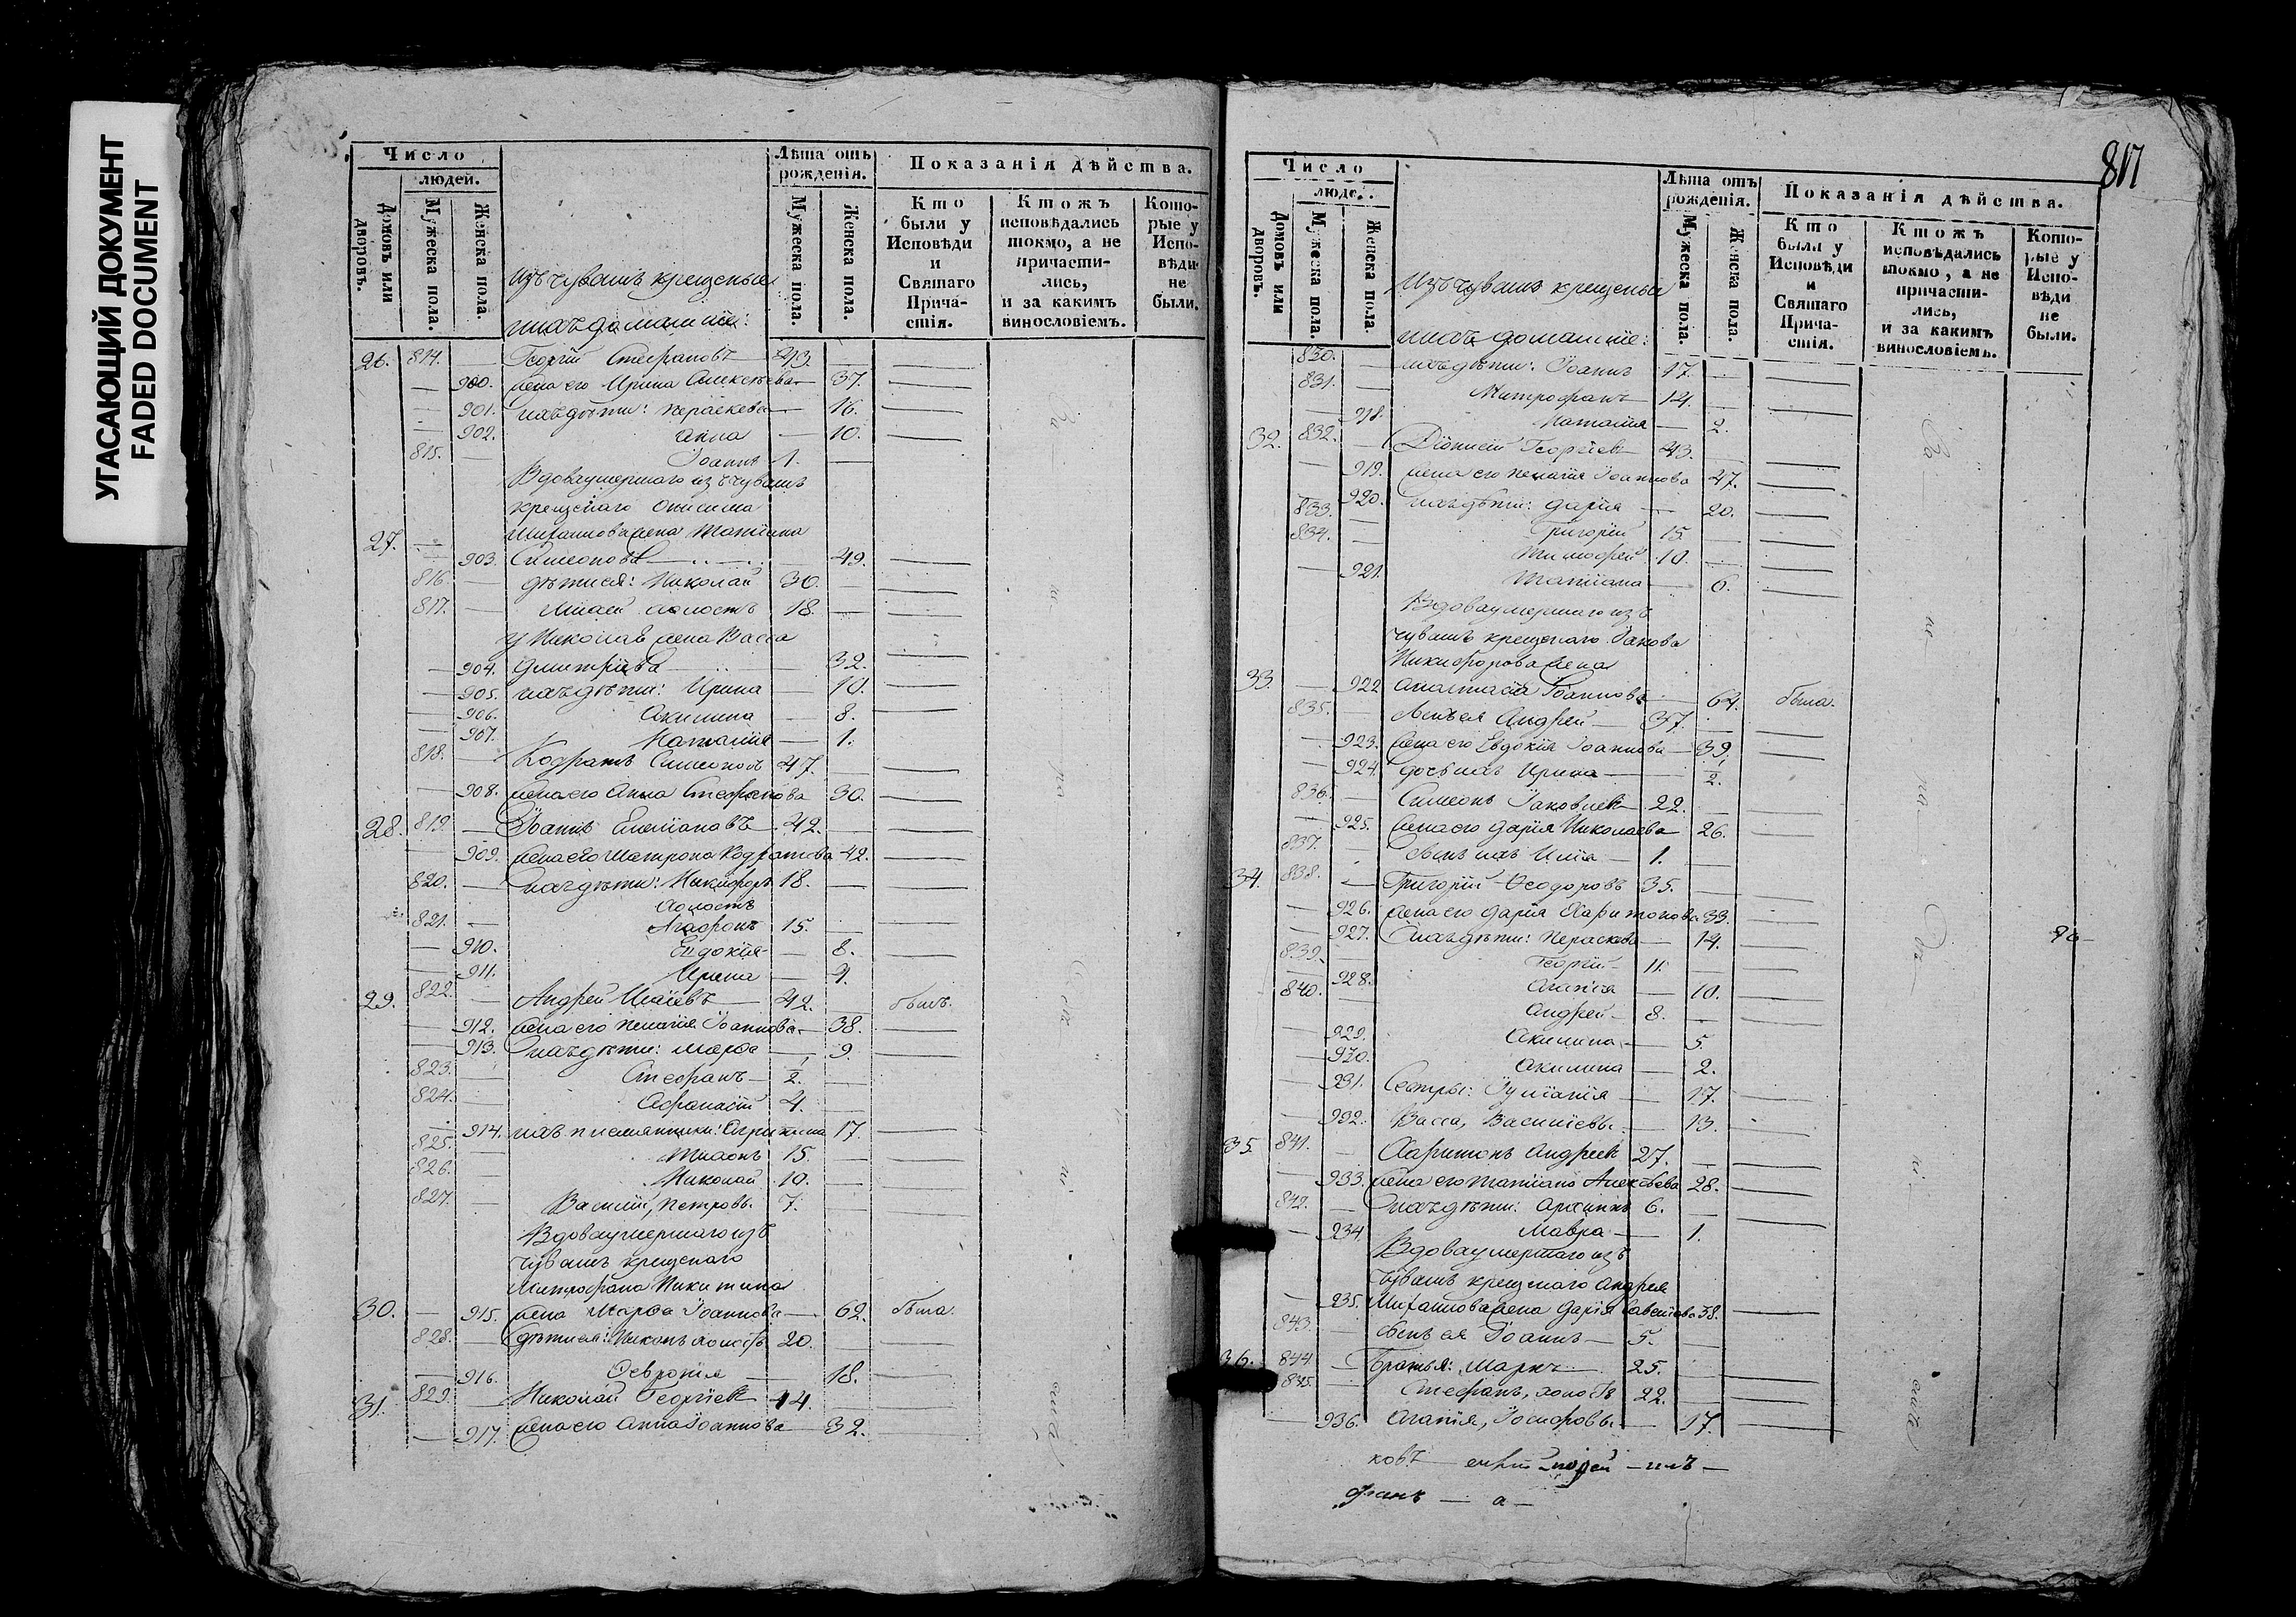 УГАСАЮЩИЙ ДОКУМЕНТ
FADED DOCUMENT
Число
людей.
Домовъ или дворовъ.
Мужеска пола.
Женска пола.
изъ чувашъ крещеные
ихъ домашніе:
Лѣта отъ рожденія.
Мужеска пола.
Женска пола.
Показанія дѣйства.
Кто были у Исповѣди и Святаго Причастія.
Ктожъ исповѣдались токмо, а не причастились, и за какимъ винословіемъ.
Которые у Исповѣди не были.
26. 814. — Георгій Стефановъ 43. —
— 900. жена его Ирина Алексѣева — 37.
— 901. ихъ дѣти: Параскева — 16.
— 902. Анна — 10.
815. — Іоаннъ 1. —
Вдова умершаго изъ чувашъ
крещенаго Онисима
Михайлова жена Татіана
27. — 903. Симеонова — 49.
816. — дѣти ея: Николай 30.
817. — холостъ 18. —
у Николая жена Васса
— 904. Дмитріева — 32.
— 905. ихъ дѣти: Ирина — 10.
— 906. Акилина — 8.
— 907. Наталія — 1.
818. — Кодратъ Симеоновъ 47. —
— 908. жена его Анна Стефанова 30.
28. 819. — Іоаннъ Емеліановъ 42. —
— 909. жена его Матрона Кодратова 42.
820. — ихъ дѣти: Никифоръ 18. —
холостъ
821. — Агафонъ 15. —
— 910. Евдокія — 8.
— 911. Ирина — 4.
29. 822. — Андрей Иліевъ 42. — былъ.
— 912. жена его Пелагія Іоаннова — 38.
— 913. ихъ дѣти: Марфа — 9.
823. — Стефанъ 1/2. —
824. — Афанасій 4. —
— 914. ихъ племянники: Агрипина 17.
825. — 15. —
826. — Николай 10. —
827. — Василій, Петровы. 7. —
Вдова умершаго изъ
чувашъ крещенаго
Митрофана Никитина
30. — 915. жена Марфа Іоаннова — 62. была.
828. — дѣти ея: Никонъ холостъ 20. —
— 916. Февронія — 18.
31. 829. — Николай Георгіевъ 44.
— 917. жена его Анна Іоаннова — 32.
817
Число
людей.
Домовъ или дворовъ.
Мужеска пола.
Женска пола.
Изъ чувашъ крещеные
ихъ домашніе:
Лѣта отъ рожденія.
Мужеска пола.
Женска пола
Показанія дѣйства.
Кто были у Исповѣди и Святаго Причастія.
Ктожъ исповѣдались токмо, а не причастились, и за какимъ винословіемъ.
Которые у Исповѣди не были.
830. — ихъ дѣти: Іоаннъ 17. —
831. — Митрофанъ 14. —
— 918. Наталія — 2.
32. 832. — Діонисій Георгіевъ 43. —
— 919. жена его Пелагія Іоаннова 47.
— 920. ихъ дѣти: Дарія — 20.
833. — Григорій 15. —
834. — Тимофей 10. —
— 921. Татіана — 6.
Вдова умершаго изъ
чувашъ крещенаго Іакова
Никифорова жена
33. — 922 Анастасія Іоаннова — 64. была.
835. — сынъ ея Андрей — 37.
— 923. жена его Евдокія Іоаннова — 39.
— 924. дочь ихъ Ирина — 1/2.
836. — Симеонъ Іаковлевъ 22. —
— 925. жена его Дарія Николаева 26.
837. — сынъ ихъ Илія — 1. —
34. 838. — Григорій Ѳеодоровъ 35. —
— 926. жена его Дарія Харитонова 33.
— 927. ихъ дѣти: Параскева — 14.
839. — Георгій 11. —
— 928. Агапія — 10.
840. — Андрей 8. —
— 929. Акилина — 5.
— 930. Акилина — 2.
— 931. Сестры: Іуліанія — 17.
— 932. Васса, Василіевы. — 13.
35. 841. — Харитонъ Андреевъ 27. —
— 933. жена его Татіана Алексѣева 28.
842. — ихъ дѣти: Архипъ 6. —
— 934 Мавра — 1.
Вдова умершаго изъ
чувашъ крещенаго Андрея
— 935. Михайлова жена Дарія Савеліева 38.
843. — сынъ ея Іоаннъ 5. —
36. 844. — Братья: Маркъ 25. —
845. — Стефанъ, холостъ 22. —
— 936. Агапія, Іосифовы. — 17.